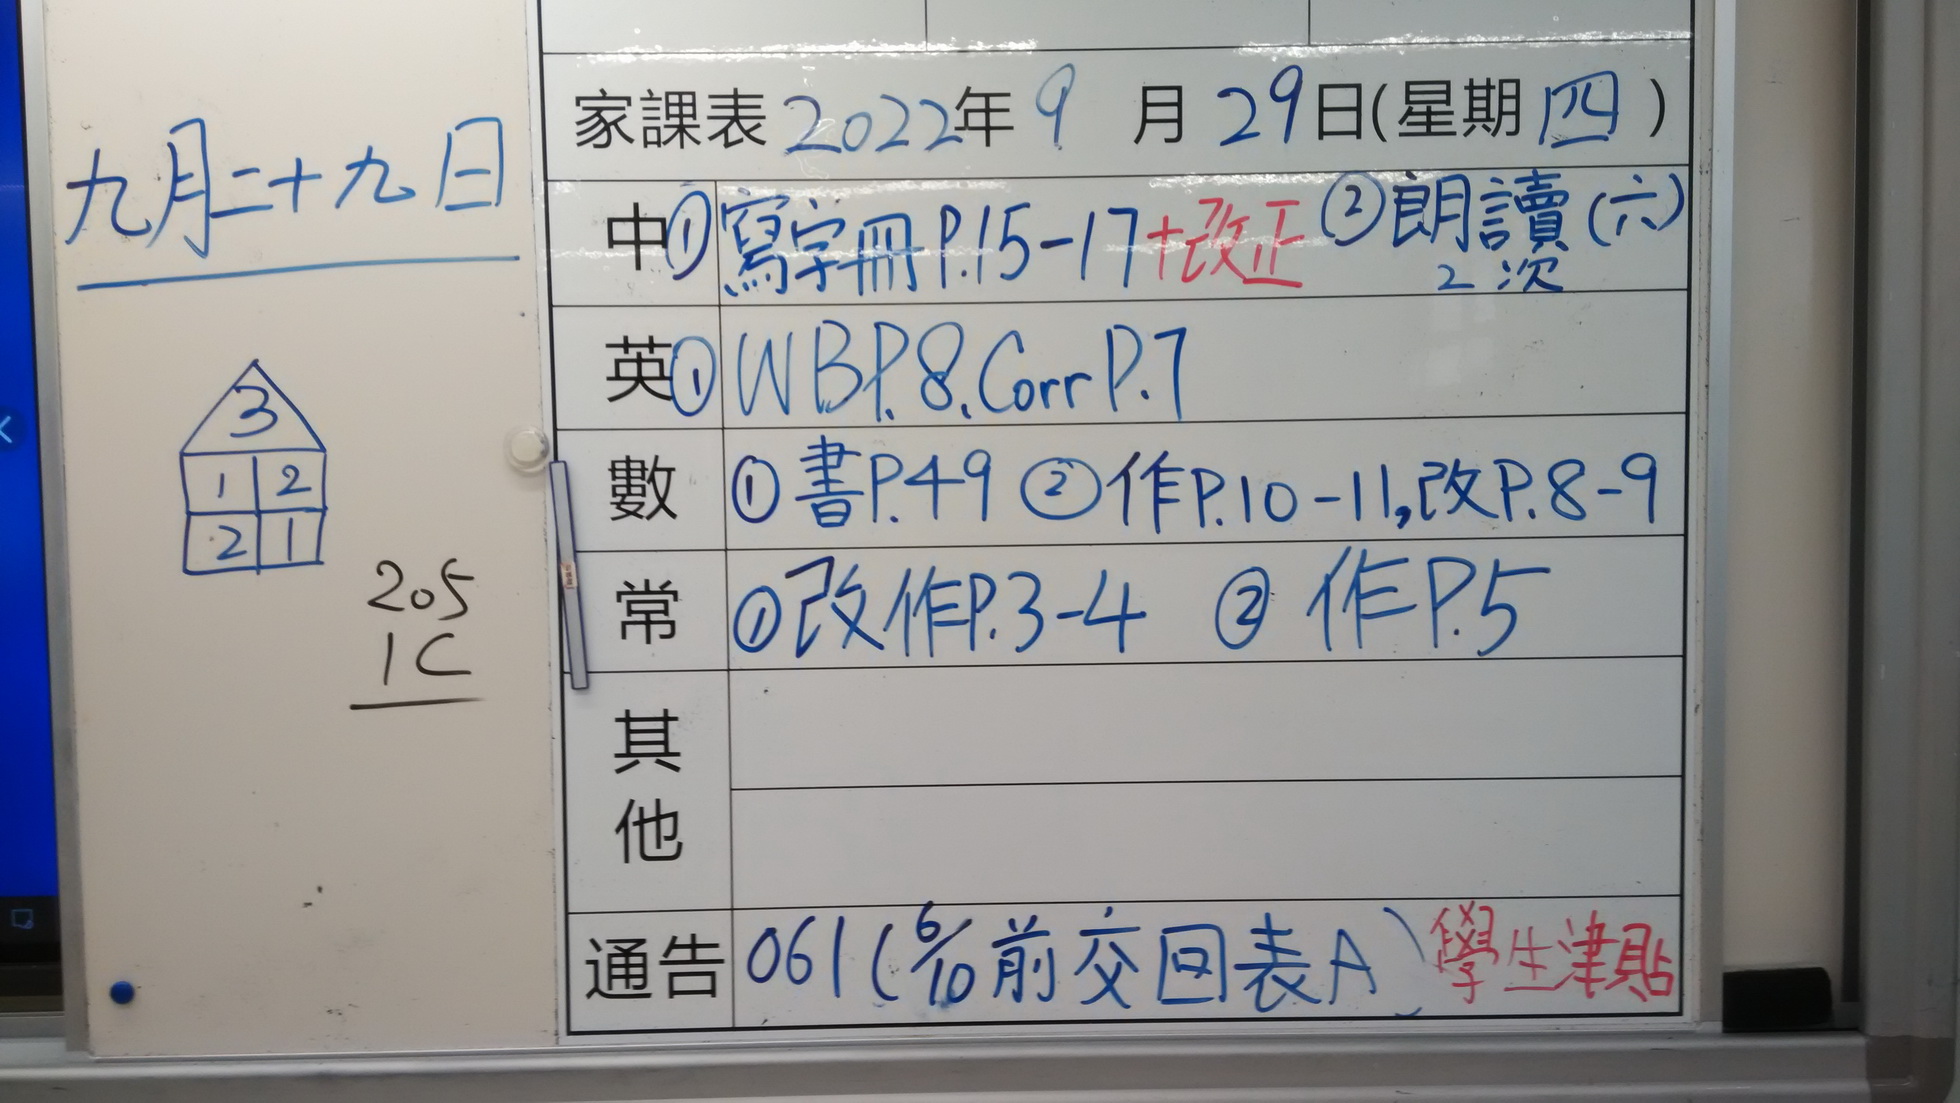 九月二十九日
3
1 2
2 1
205
1C
家課表 2022年 9 月 29日(星期四)
中 ① 寫字冊P.15-17+改正 ② 朗讀(六)
2次
英 ① WB P.8, Corr P.7
數 ① 書P.49 ② 作P.10-11,改P.8-9
常 ① 改作P.3-4 ② 作P.5
其他
通告 061(6/10前交回表A) 學生津貼